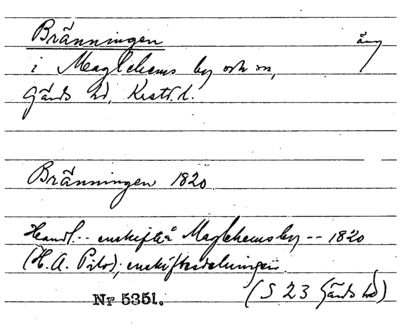 Bränningen äng
i Maglehems by och sn,
Gärds hd, Krstd. l.
Bränningen 1820
Handl. -- enskifte å Maglehems by -- 1820
(H. A. Pilo); enskiftesdelningen.
Nr 5351. (S 23 Gärds hd)